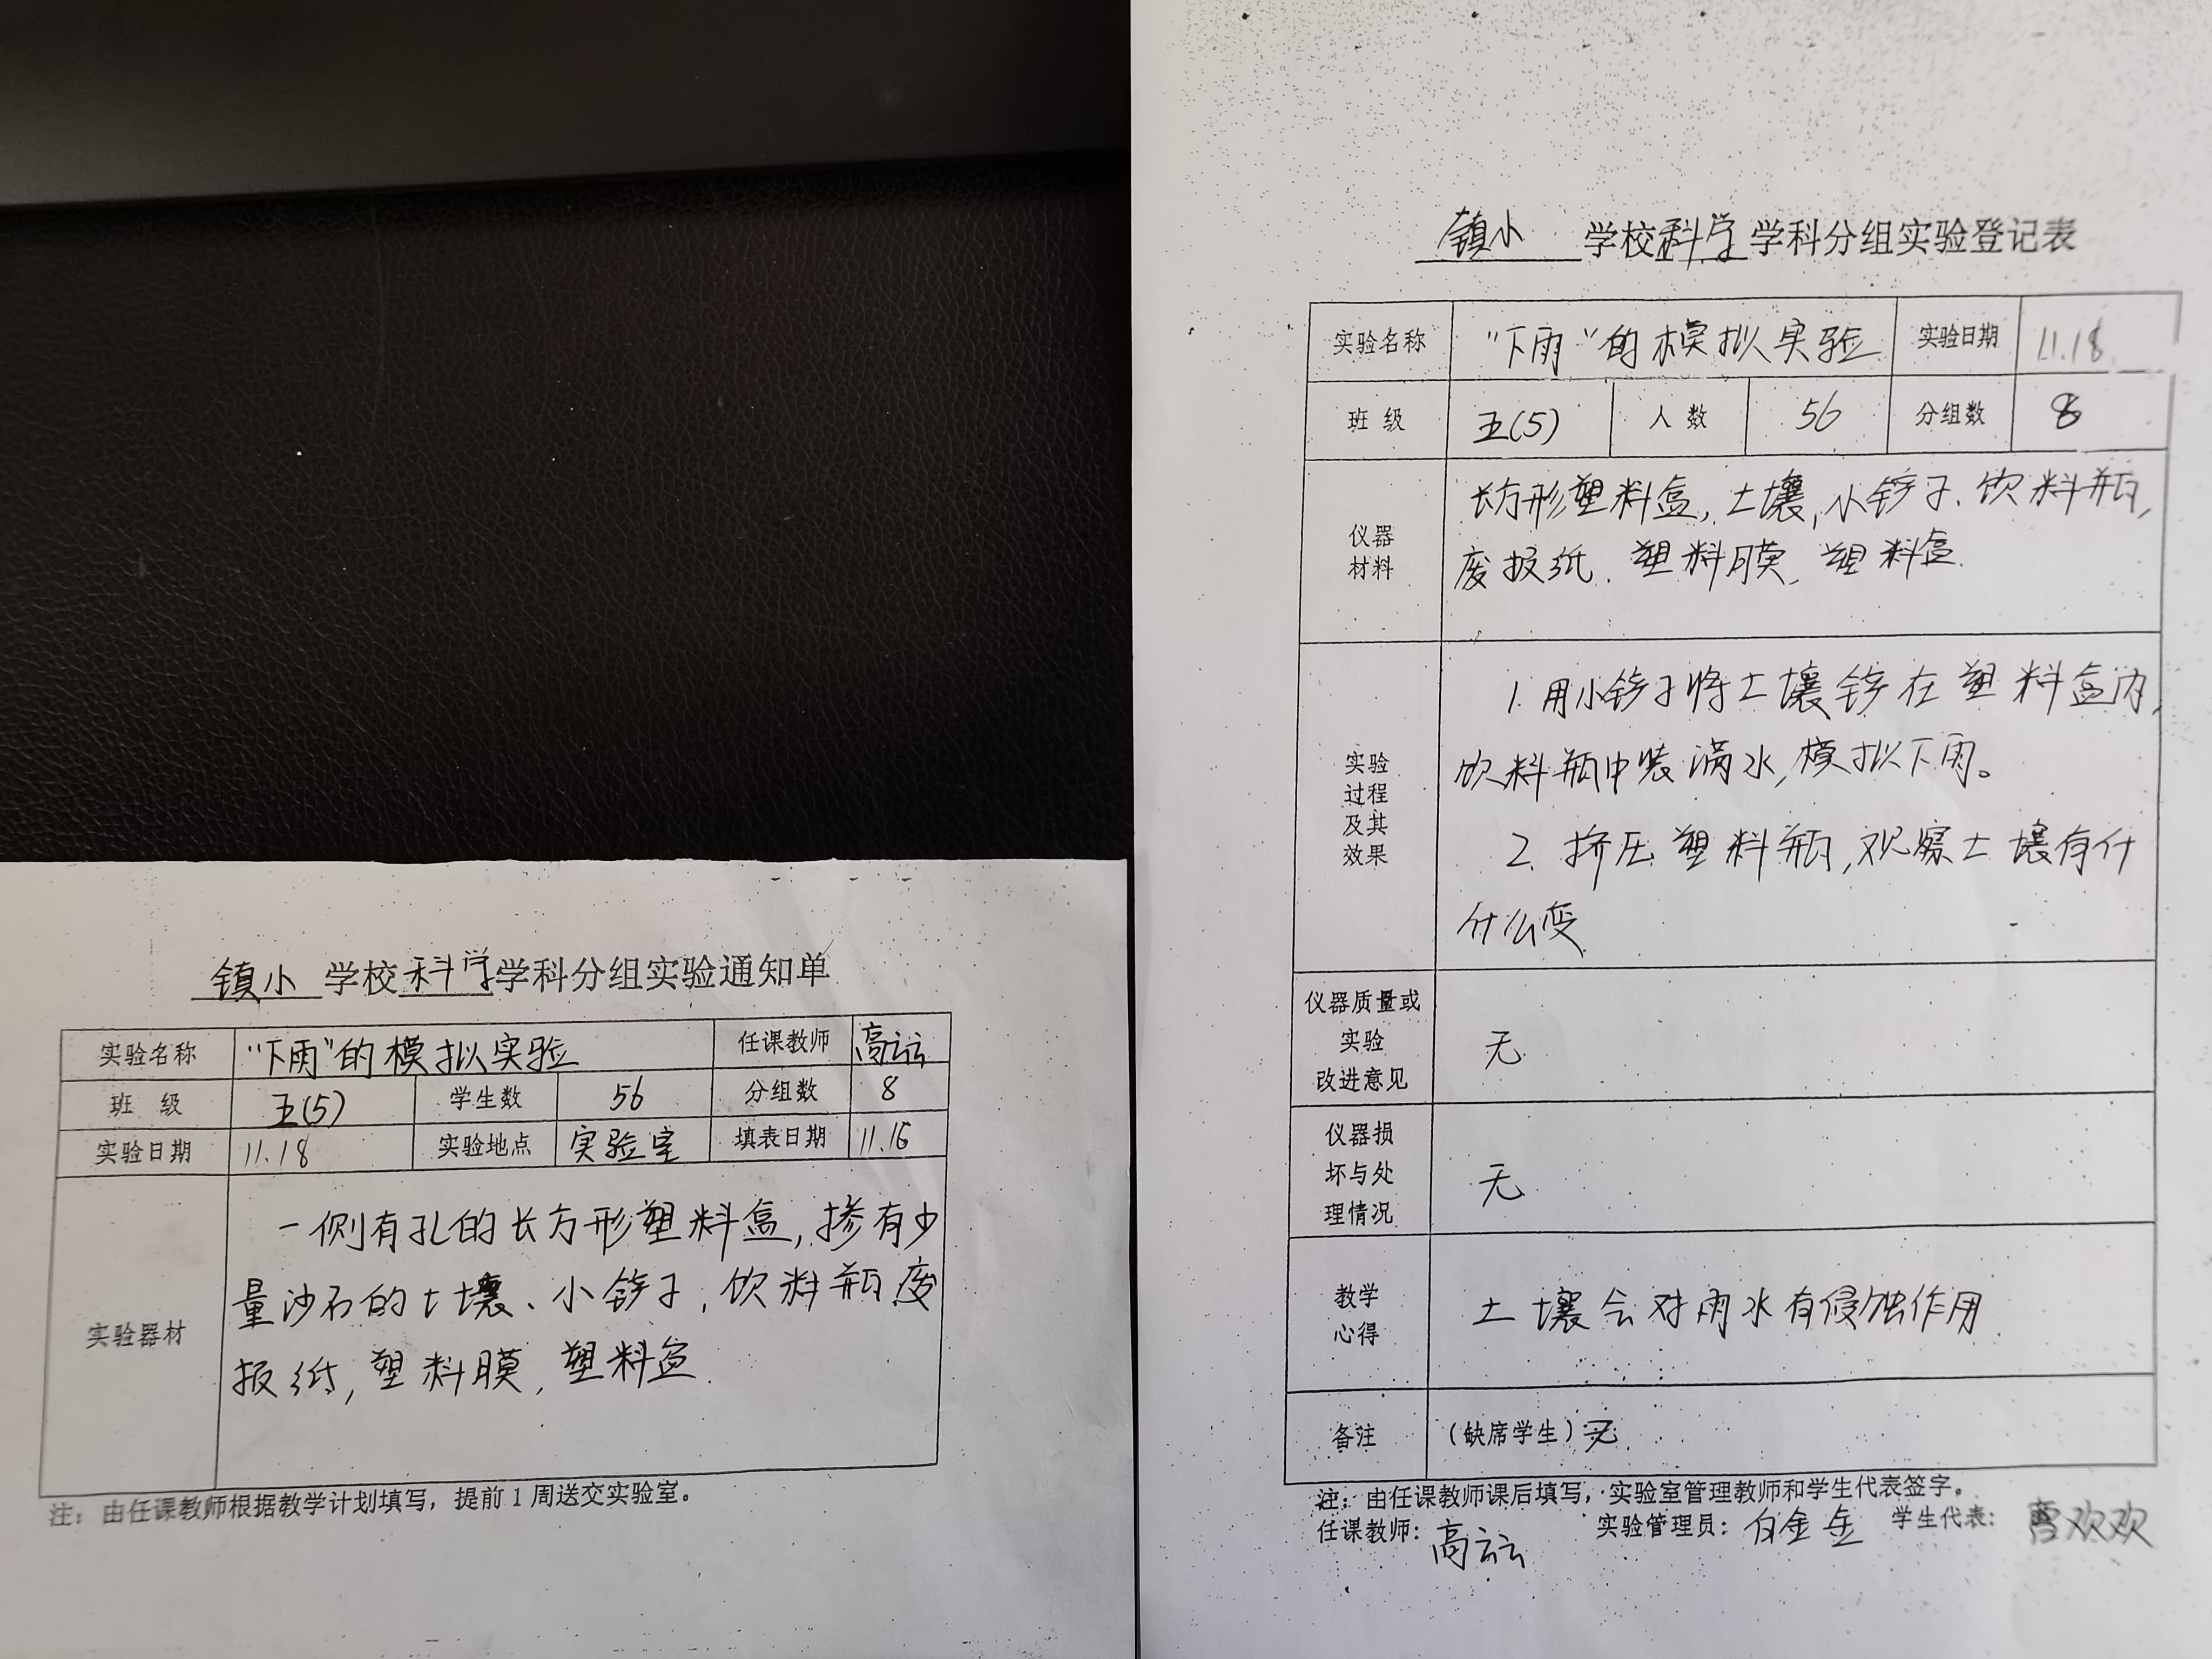 镇小 学校科学学科分组实验通知单
实验名称 “下雨”的模拟实验 任课教师 高云云
班 级 五(5) 学生数 56 分组数 8
实验日期 11.18 实验地点 实验室 填表日期
实验器材
一侧有孔的长方形塑料盒,掺有少
量沙石的土壤、小铲子,饮料瓶废
报纸,塑料膜,塑料盒.
注：由任课教师根据教学计划填写，提前1周送交实验室。
镇小 学校科学学科分组实验登记表
实验名称 “下雨”的模拟实验 实验日期 11.18
班 级 五(5) 人 数 56 分组数 8
仪器
材料
长方形塑料盒,土壤,小铲子.饮料瓶,
废报纸.塑料膜、塑料盒.
实验
过程
及其
效果
1.用小铲子将土壤铲在塑料盒内,
饮料瓶中装满水,模拟下雨。
2.挤压塑料瓶,观察土壤有什
什么变
仪器质量或
实验
改进意见
无
仪器损
坏与处
理情况
无
教学
心得
土壤会对雨水有侵蚀作用
备注 （缺席学生）无
注：由任课教师课后填写，实验室管理教师和学生代表签字。
任课教师：高云云 实验管理员：白金金 学生代表：欢欢